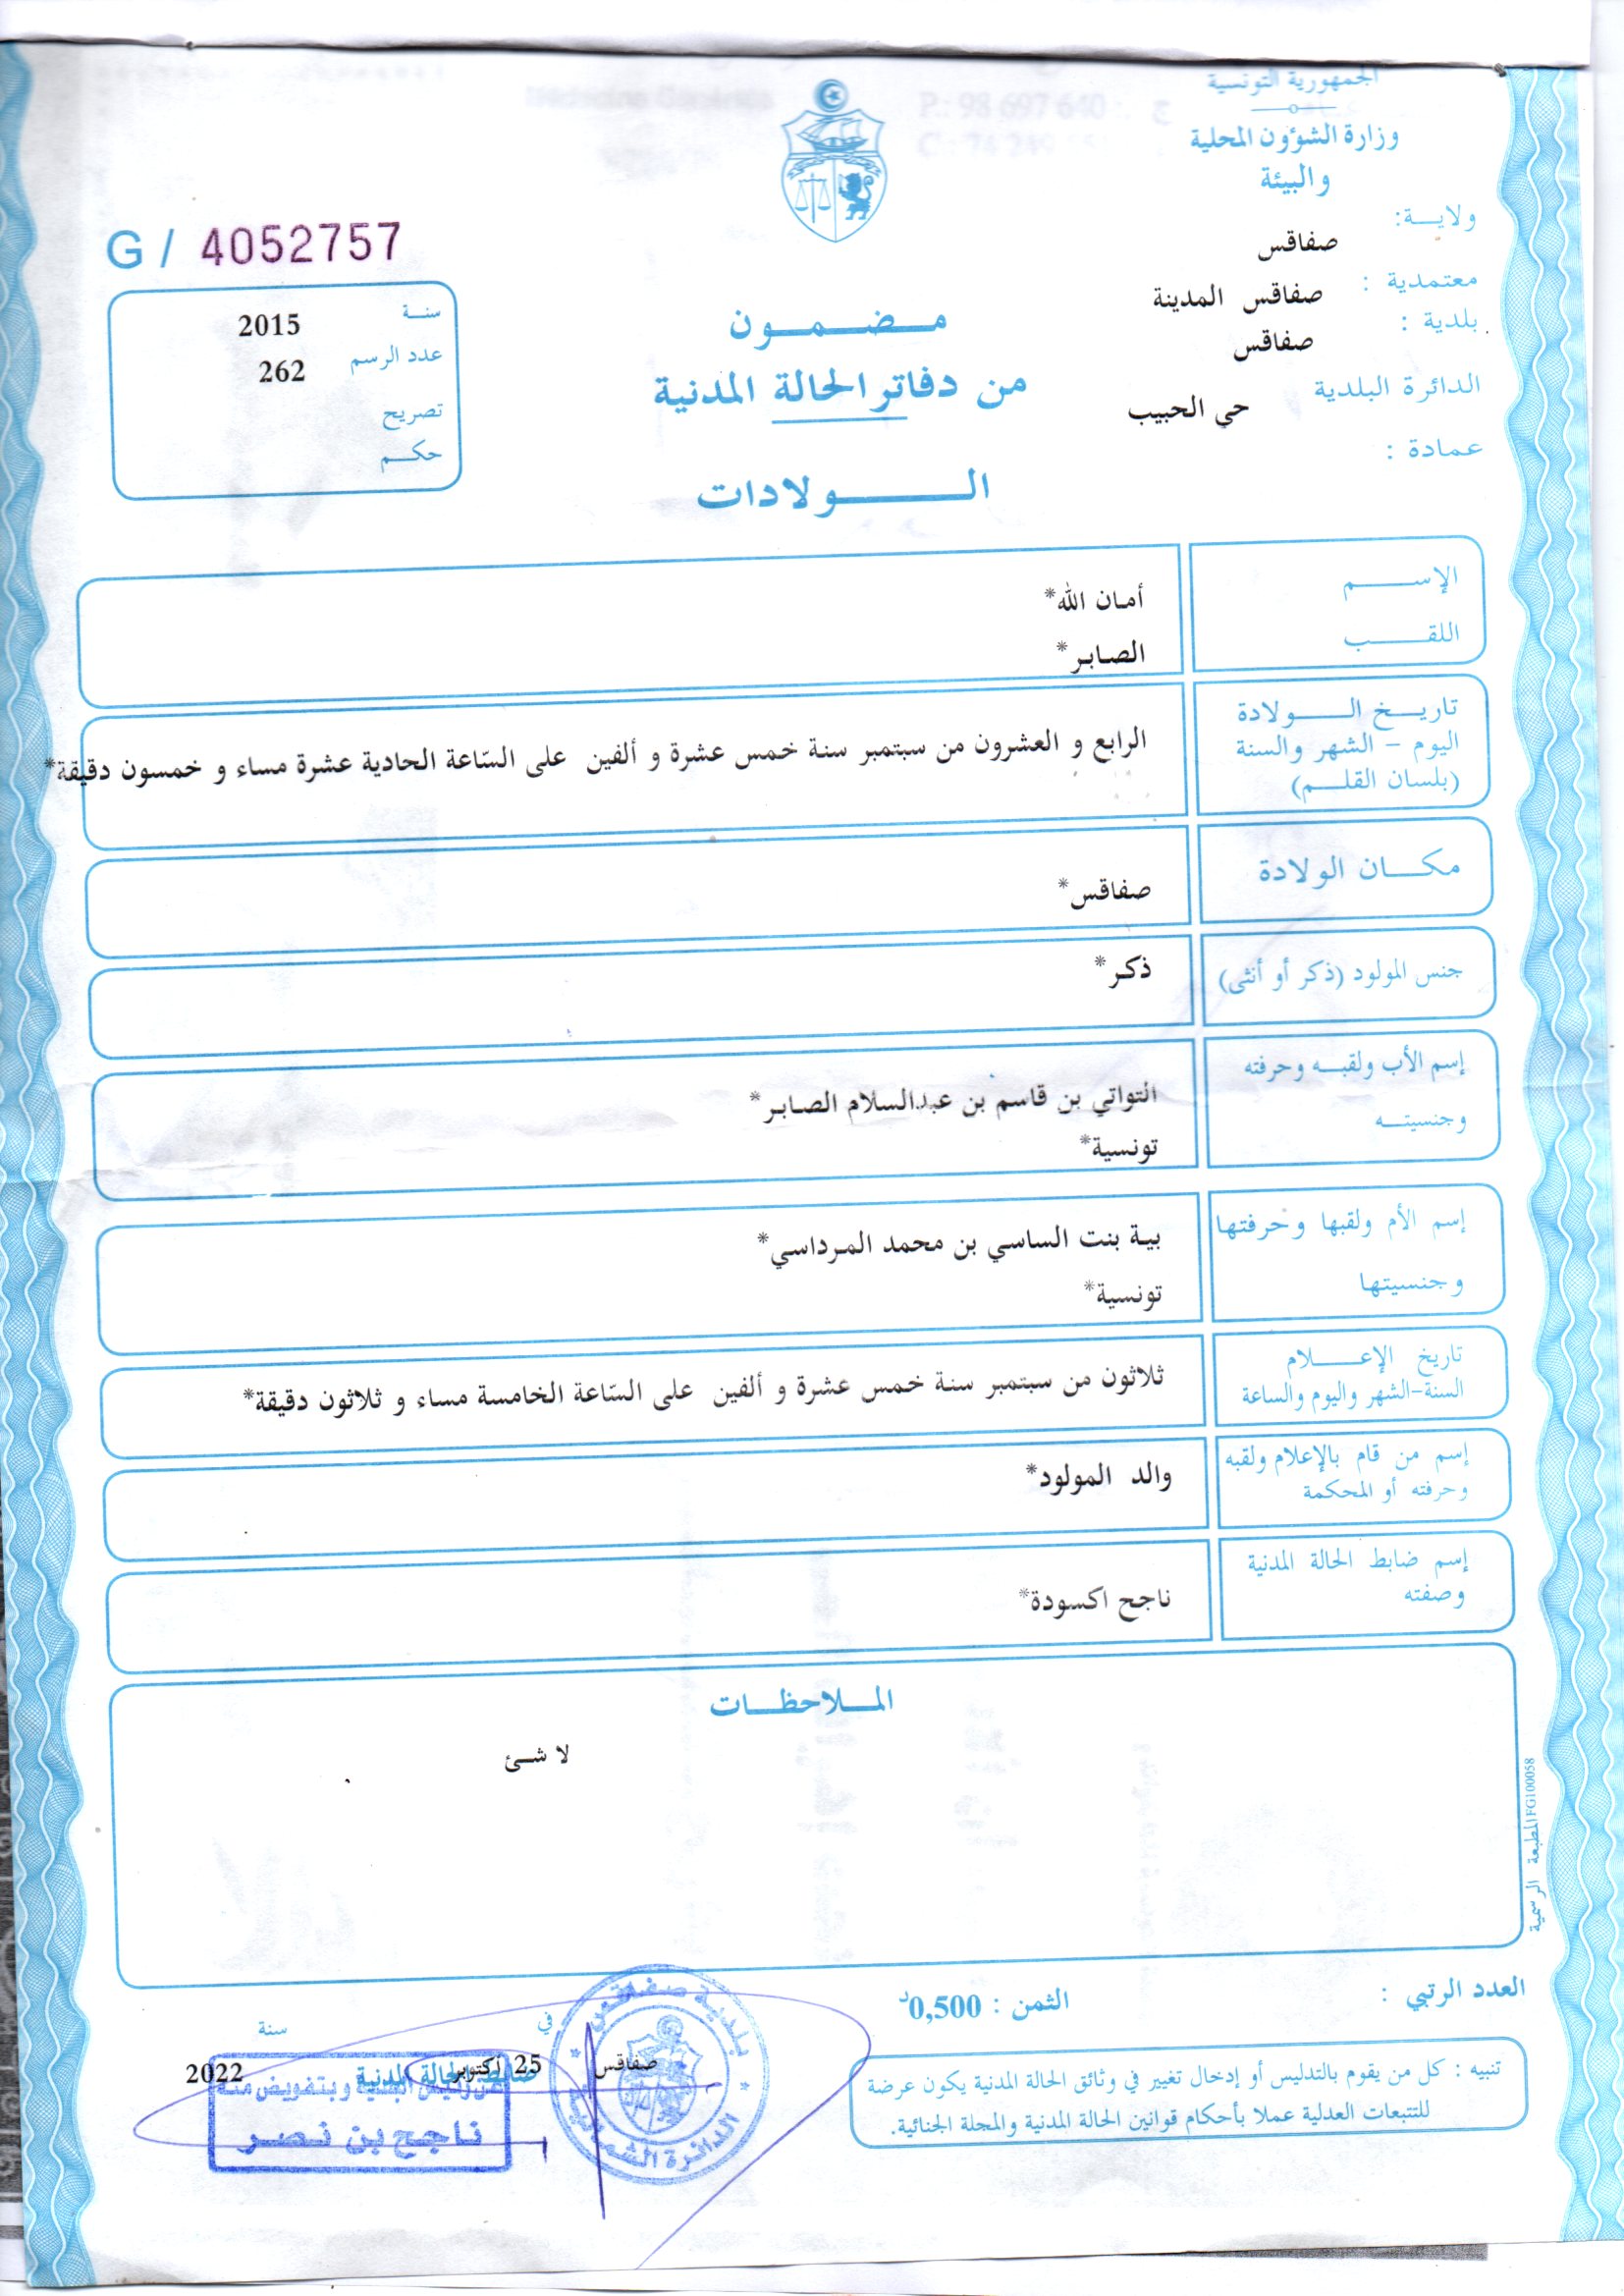 الجمهورية التونسية
وزارة الشؤون المحلية
والبيئة
ولايـــة:
صفاقس
معتمدية :
صفاقس المدينة
بلدية :
صفاقس
الدائرة البلدية
حي الحبيب
عمادة :
G / 4052757
سنــة
2015
عدد الرسم
262
تصريح
حكــم
مـــضـــمـــون
من دفاتر الحالة المدنية
الــــــولادات
الإســــــم
أمـان الله*
اللقــــــب
الصـابـر*
تاريــــخ الــــــولادة
اليوم – الشهر والسنة
(بلسان القلـــم)
الرابع و العشرون من سبتمبر سنة خمس عشرة و ألفين على السّاعة الحادية عشرة مساء و خمسون دقيقة*
مكــــان الولادة
صفاقس*
جنس المولود (ذكر أو أنثى)
ذكـر*
إسم الأب ولقبـــه وحرفته
وجنسيتـــه
التواتي بن قاسم بن عبدالسلام الصـابـر*
تونسية*
إسم الأم ولقبها وحرفتها
وجنسيتها
بيـة بنت الساسي بن محمد المـرداسي*
تونسية*
تاريخ الإعـــــلام
السنة-الشهر واليوم والساعة
ثلاثون من سبتمبر سنة خمس عشرة و ألفين على السّاعة الخامسة مساء و ثلاثون دقيقة*
إسم من قام بالإعلام ولقبه
وحرفته أو المحكمة
والد المولود*
إسم ضابط الحالة المدنية
وصفته
ناجح اكسودة*
المــلاحظـــات
لا شـئ
المطبعة الرسمية FG100058
العدد الرتبي :
الثمن : 0,500د
تنبيه : كل من يقوم بالتدليس أو إدخال تغيير في وثائق الحالة المدنية يكون عرضة
للتتبعات العدلية عملا بأحكام قوانين الحالة المدنية والمجلة الجنائية.
صفاقس في 25 أكتوبر سنة 2022
ضابط الحالة المدنية
عن رئيس البلدية وبتفويض منه
ناجح بن نصر
بلدية صفاقس